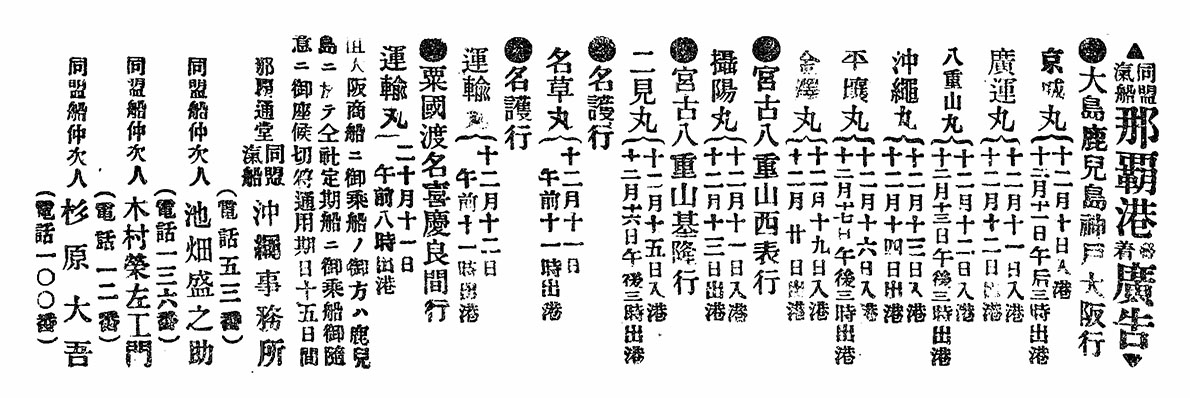 ▲同盟汽船那覇港發着廣告▼
●大島鹿兒島神戸大阪行
京城丸
十二月十日入港
十二月十一日午后三時出港
廣運丸
十二月十一日入港
十二月十二日出港
八重山丸
十二月十二日入港
十二月十三日午後三時出港
沖繩丸
十二月十三日入港
十二月十四日出港
平壤丸
十二月十六日入港
十二月十七日午後三時出港
金澤丸
十二月十九日入港
十二月廿日出港
●宮古八重山西表行
攝陽丸
十二月十一日入港
十二月十三日出港
●宮古八重山基隆行
二見丸
十二月十五日入港
十二月十六日午後三時出港
●名護行
名草丸
十二月十一日
午前十一時出港
●名護行
運輸丸
十二月十二日
午前十一時出港
●粟國渡名喜慶良間行
運輸丸
二十月十一日
午前八時出港
但大阪商船ニ御乘船ノ御方ハ鹿兒
島ニ於テ仝社定期船ニ御乘船御隨
意ニ御座候切符通用期日十五日間
那覇通堂
同盟汽船沖繩事務所
(電話五三番)
同盟船仲次人 池畑盛之助
(電話一三六番)
同盟船仲次人 木村榮左工門
(電話一二番)
同盟船仲次人 杉原大吾
(電話一〇〇番)